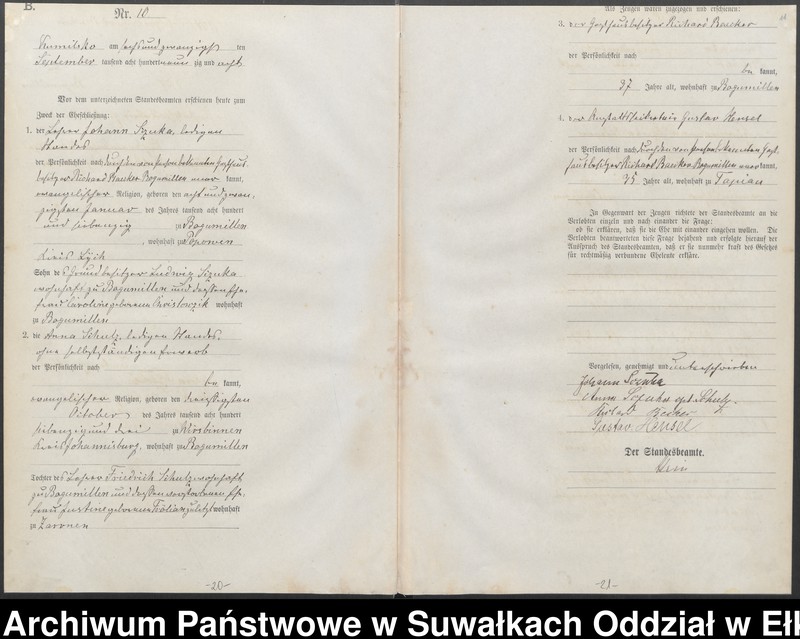 B.
Nr. 10
Kumilsko am sechsundzwanzigsten
September tausend acht hundert neunzig und acht
Vor dem unterzeichneten Standesbeamten erschienen heute zum
Zweck der Eheschließung:
1. der Lehrer Johann Szuka, ledigen
Standes
der Persönlichkeit nach durch den von Person bekannten Gasthaus-
besitzer Richard Baecker-Bogumillen anerkannt,
evangelischer Religion, geboren den acht und zwan-
zigsten Januar des Jahres tausend acht hundert
und siebenzig zu Bogumillen
, wohnhaft zu Popowen
Kreis Lyck
Sohn des Grundbesitzer Ludwig Szuka
wohnhaft zu Bogumillen und dessen Ehe-
frau Caroline geborenen wohnhaft
zu Bogumillen
2. die Anna Schulz, ledigen Standes,
ohne selbstständigen Erwerb
der Persönlichkeit nach
be kannt,
evangelischer Religion, geboren den dreißigsten
Oktober des Jahres tausend acht hundert
siebenzig und drei zu Wiersbinnen
Kreis Johannisburg, wohnhaft zu Bogumillen
Tochter des Lehrer Friedrich Schulz, wohnhaft
zu Bogumillen und dessen verstorbenen Ehe-
frau Justine geborenen zuletzt wohnhaft
zu
-20-
Als Zeugen waren zugezogen und erschienen:
3. der Gasthausbesitzer Richard Baecker
der Persönlichkeit nach
be kannt,
37 Jahre alt, wohnhaft zu Bogumillen
4. der Anstaltssekretair Gustav Hensel
der Persönlichkeit nach durch den von Person bekannten Gast-
hausbesitzer Richard Baecker-Bogumillen anerkannt,
35 Jahre alt, wohnhaft zu Tapiau
In Gegenwart der Zeugen richtete der Standesbeamte an die
Verlobten einzeln und nach einander die Frage:
ob sie erklären, daß sie die Ehe mit einander eingehen wollen. Die
Verlobten beantworteten diese Frage bejahend und erfolgte hierauf der
Ausspruch des Standesbeamten, daß er sie nunmehr kraft des Gesetzes
für rechtmäßig verbundene Eheleute erkläre.
Vorgelesen, genehmigt und unterschrieben
Johann Szuka
Anna Szuka geb. Schulz.
Richard Baecker
Gustav Hensel
Der Standesbeamte.
-21-
Archiwum Państwowe w Suwałkach Oddział w Eł